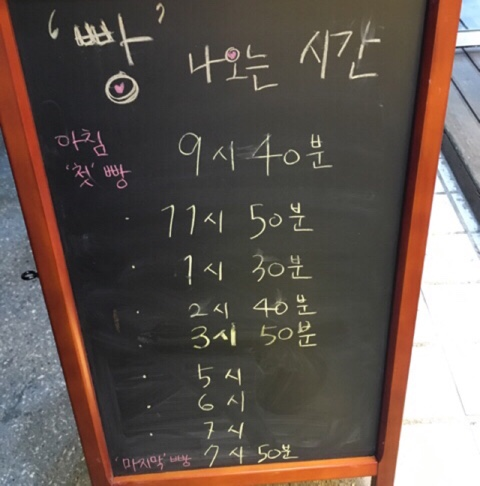 '빵' 나오는 시간
아침 9시 40분
'첫' 빵
· 11시 50분
· 1시 30분
· 2시 40분
· 3시 50분
· 5시
· 6시
· 7시
'마지막' 빵 7시 50분